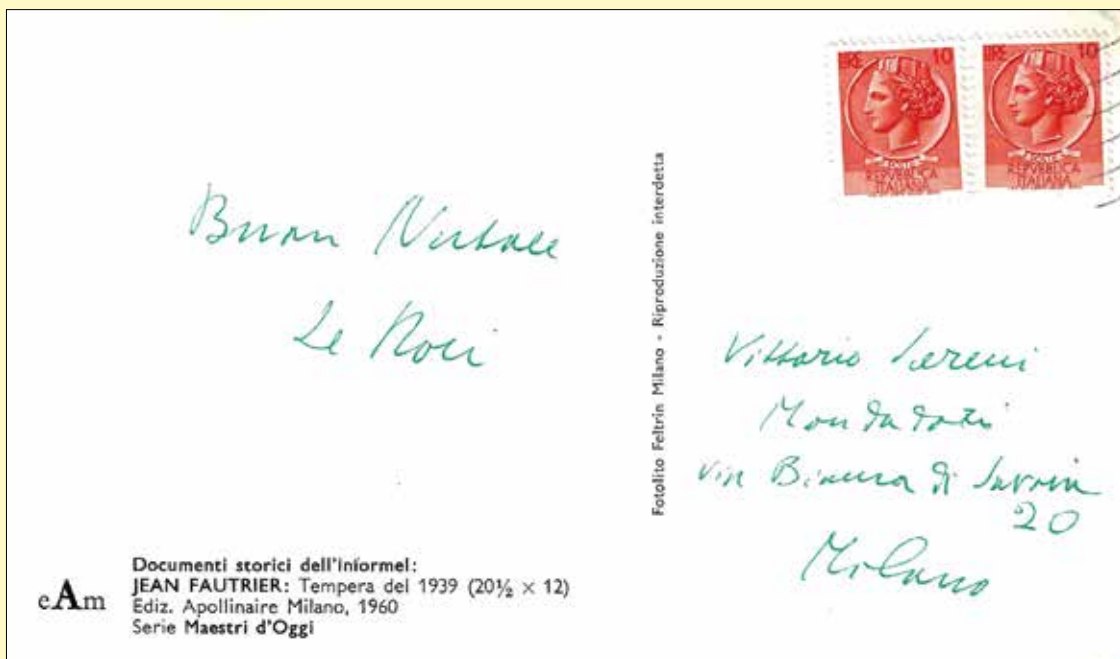 LIRE 10
POSTE
REPVBBLICA
ITALIANA
LIRE 10
POSTE
REPVBBLICA
ITALIANA
Buon Natale
Le Noci
Fotolito Feltrin Milano - Riproduzione interdetta
Vittorio Sereni
Mondadori
via Bianca di Savoia
20
Milano
eAm
Documenti storici dell'informel:
JEAN FAUTRIER: Tempera del 1939 (20½ × 12)
Ediz. Apollinaire Milano, 1960
Serie Maestri d'Oggi